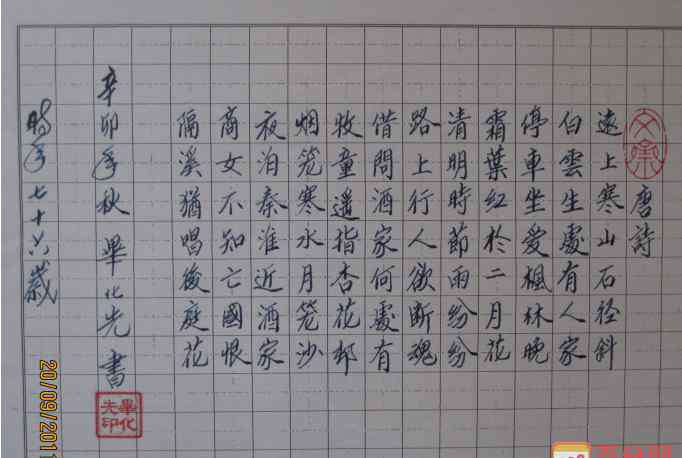 唐詩
遠上寒山石径斜
白雲生處有人家
停車坐爱楓林晚
霜葉红於二月花
清明時節雨纷纷
路上行人欲断魂
借問酒家何處有
牧童遥指杏花邨
烟笼寒水月笼沙
夜泊秦淮近酒家
商女不知亡國恨
隔溪猶唱後庭花
辛卯年秋 畢化先 書
畢化先印
時年七十六歲
20/09/201